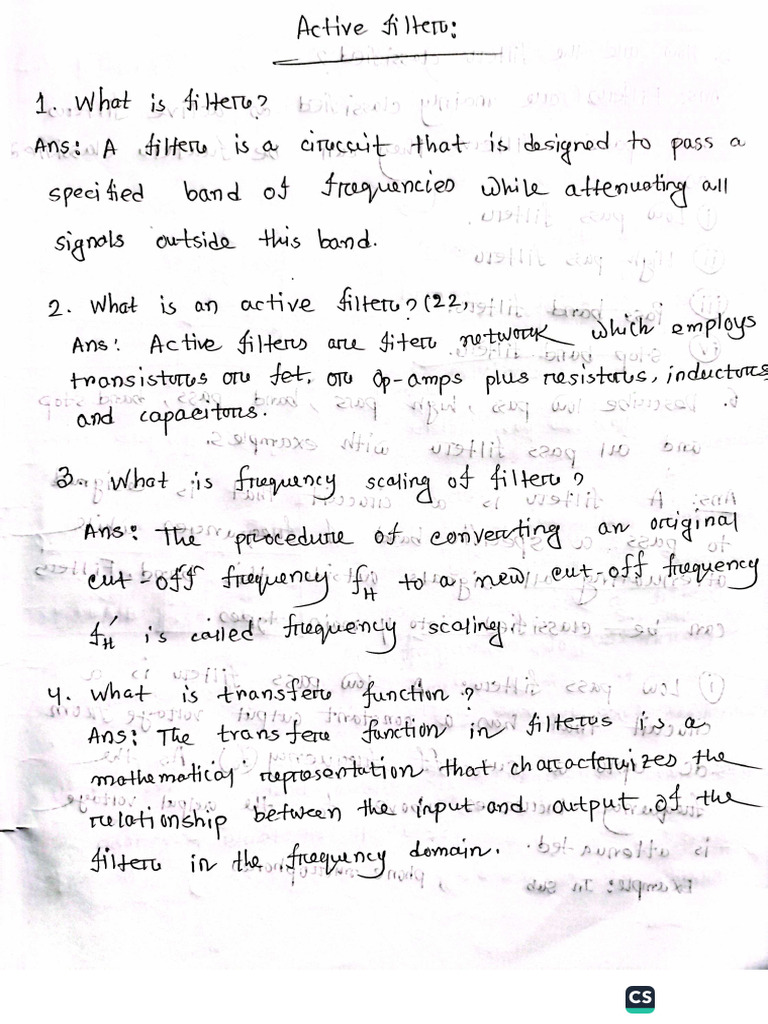 Active filter:
1. What is filter?
Ans: A filter is a circuit that is designed to pass a
specified band of frequencies while attenuating all
signals outside this band.
2. What is an active filter? (22,
Ans: Active filters are fiter network which employs
transistors or fet, or op-amps plus resistors, inductors
and capacitors.
3. What is frequency scaling of filter?
Ans: The procedure of converting an original
cut-off frequency fH to a new cut-off frequency
fH' is called frequency scaling.
4. What is transfer function?
Ans: The transfer function in filters is a
mathematical representation that characterizes the
relationship between the input and output of the
filter in the frequency domain.
CS